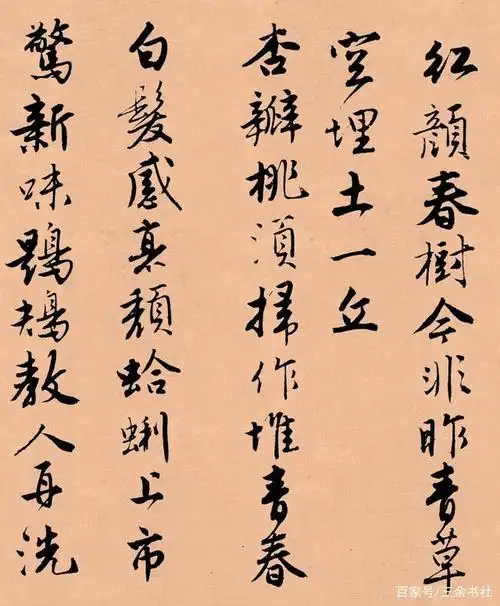 红颜春树今非昨青草
空埋土一丘
杏瓣桃须掃作堆青春
白髮感衰颓蛤蜊上市
驚新味鶗鴃教人再洗
百家号/三余书社